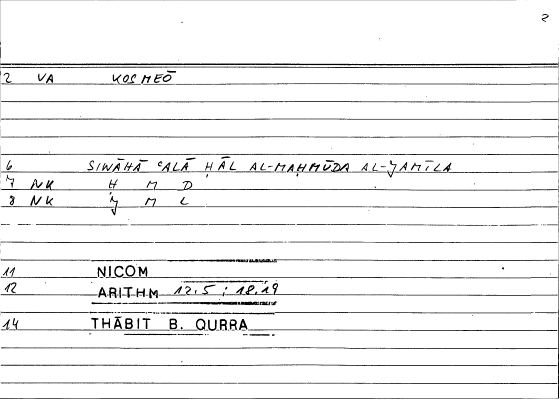 2
2 VA KOSMEŌ
6 SIWĀHĀ ʿALĀ ḤĀL AL-MAḤMŪDA AL-ǦAMĪLA
7 NK Ḥ M D
8 NK Ǧ M L
11 NICOM
12 ARITHM 12.5 ; 18.19
14 THĀBIT B. QURRA